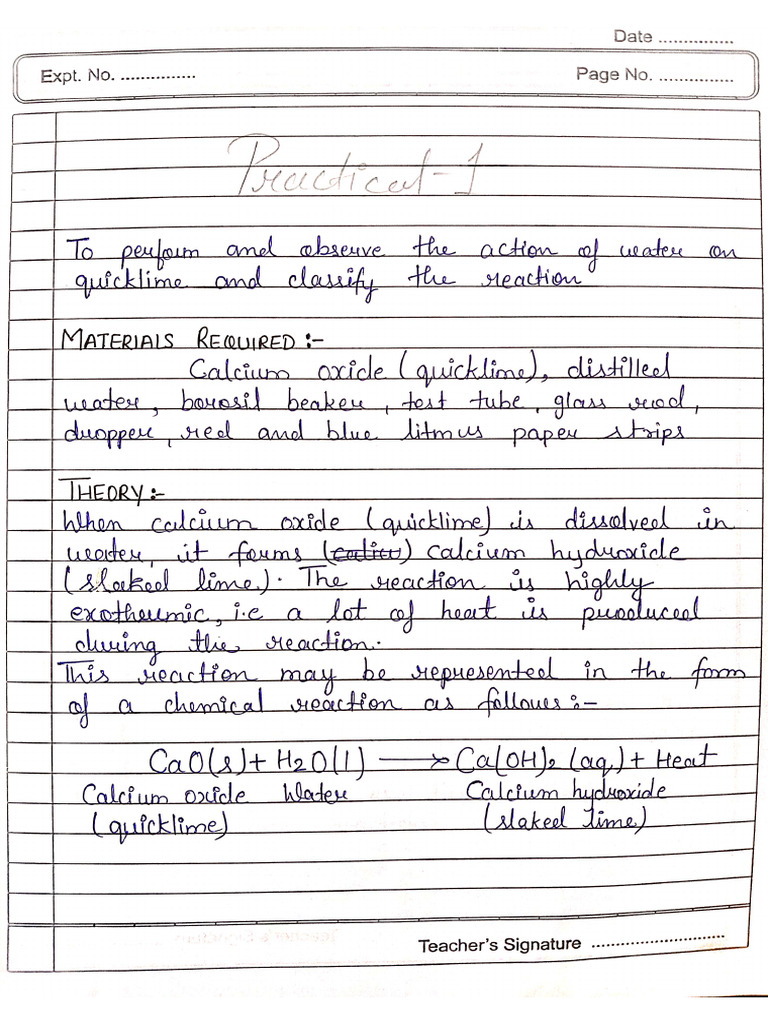 Date ...............
Expt. No. ...............
Page No. ...............
Practical-1
To perform and observe the action of water on
quicklime and classify the reaction
MATERIALS REQUIRED :-
Calcium oxide (quicklime), distilled
water, borosil beaker, test tube, glass rod,
dropper, red and blue litmus paper strips
THEORY :-
When calcium oxide (quicklime) is dissolved in
water, it forms (calciu) calcium hydroxide
(slaked lime). The reaction is highly
exothermic, i.e a lot of heat is produced
during the reaction.
This reaction may be represented in the form
of a chemical reaction as follows :-
CaO(s) + H2O(l) → Ca(OH)2 (aq) + Heat
Calcium oxide Water Calcium hydroxide
(quicklime) (slaked lime)
Teacher's Signature ...........................